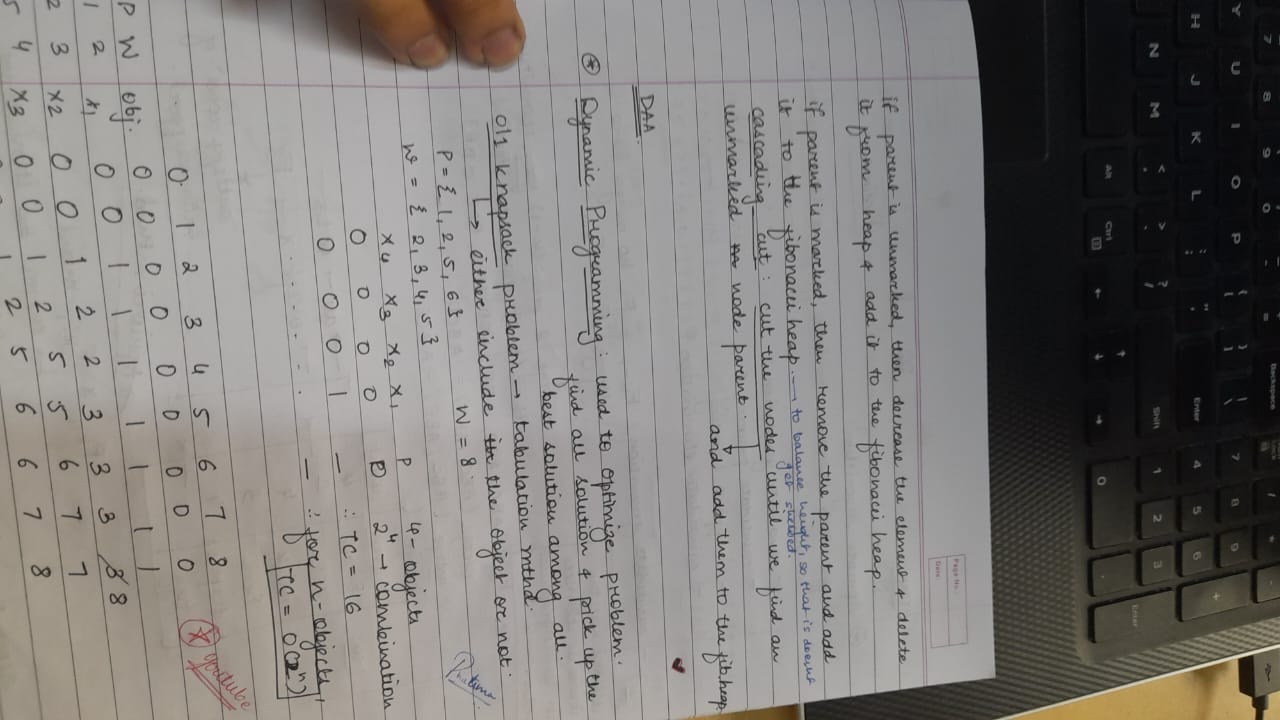 Page No.
Date:
if parent is unmarked, then decrease the element & delete
it from heap & add it to the fibonacci heap.
if parent is marked, then remove the parent and add
it to the fibonacii heap. → to balance height, so that is doesnt
get skewed.
cascading cut : cut the nodes until we find an
unmarked node parent.
and add them to the fib. heap
DAA
* Dynamic Programming : used to optimize problem.
find all solution & pick up the
best solution among all.
0/1 knapsack problem → tabulation mthd.
↳ either include the object or not.
P = { 1, 2, 5, 6 } W = 8
w = { 2, 3, 4, 5 }
x4 x3 x2 x1 P 4- objects
0 0 0 0 0 2^4 → combination
0 0 0 1 — ∴ TC = 16
— ∴ for n- objects,
TC = O(2^n)
0 1 2 3 4 5 6 7 8
P W obj. 0 0 0 0 0 0 0 0 0
1 2 x1 0 0 1 1 1 1 1 1 1
2 3 x2 0 0 1 2 2 3 3 3 8
5 4 x3 0 0 1 2 5 5 6 7 7
youtube